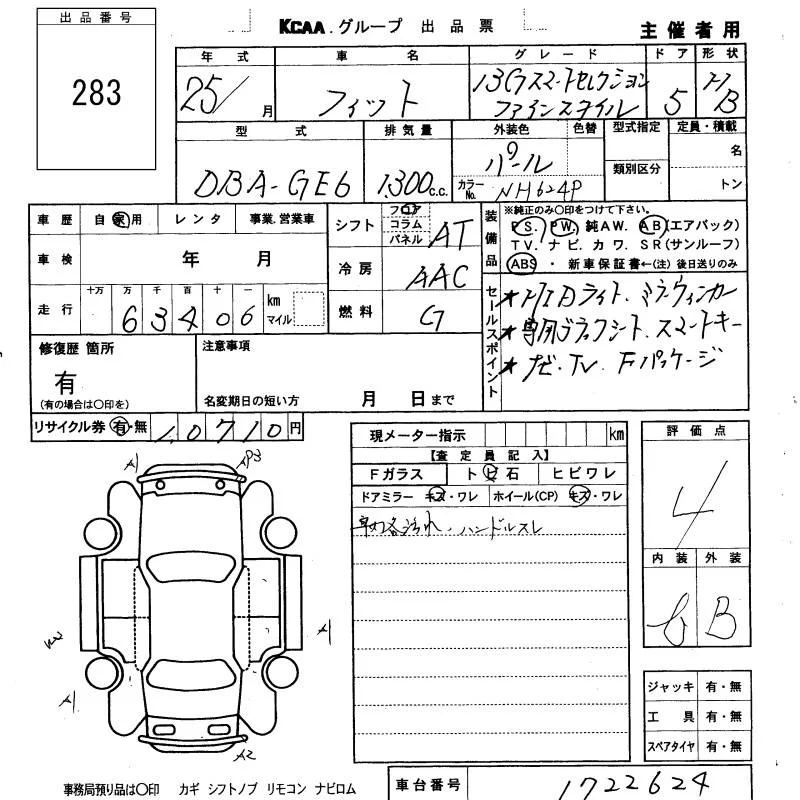 出品番号
283
KCAA.グループ 出品票
主催者用
年式 車名 グレード ドア 形状
25/ 月 フィット 13Gスマートセレクション ファインスタイル 5 H/B
型式 排気量 外装色 色替 型式指定 定員・積載
DBA-GE6 1,300 c.c. パール カラーNo. NH624P 類別区分 名
トン
車歴 自家用 レンタ 事業.営業車
シフト フロア コラム パネル AT
装備品 ※純正のみ〇印をつけて下さい。
PS. PW. 純AW. AB(エアバック)
TV. ナビ. カワ. SR(サンルーフ)
ABS ・ 新車保証書←(注)後日送りのみ
車検 年 月
冷房 AAC
走行 十万 万 千 百 十 一 km マイル
63406
燃料 G
セールスポイント
★HIDライト.ミラーウィンカー
★専用ブラックシート.スマートキー
★ナビ.TV.Fパッケージ
修復歴 箇所
有
(有の場合は〇印を)
注意事項
名変期日の短い方 月 日まで
リサイクル券 有・無 10710円
現メーター指示 km
【査定員記入】
Fガラス ト ヒ 石 ヒビワレ
ドアミラー キズ・ワレ ホイール(CP) キズ・ワレ
ハンドルスレ
評価点
4
内装 外装
B
A1
A1
A1
A2
ジャッキ 有・無
工具 有・無
スペアタイヤ 有・無
事務局預り品は〇印 カギ シフトノブ リモコン ナビロム
車台番号 1722624